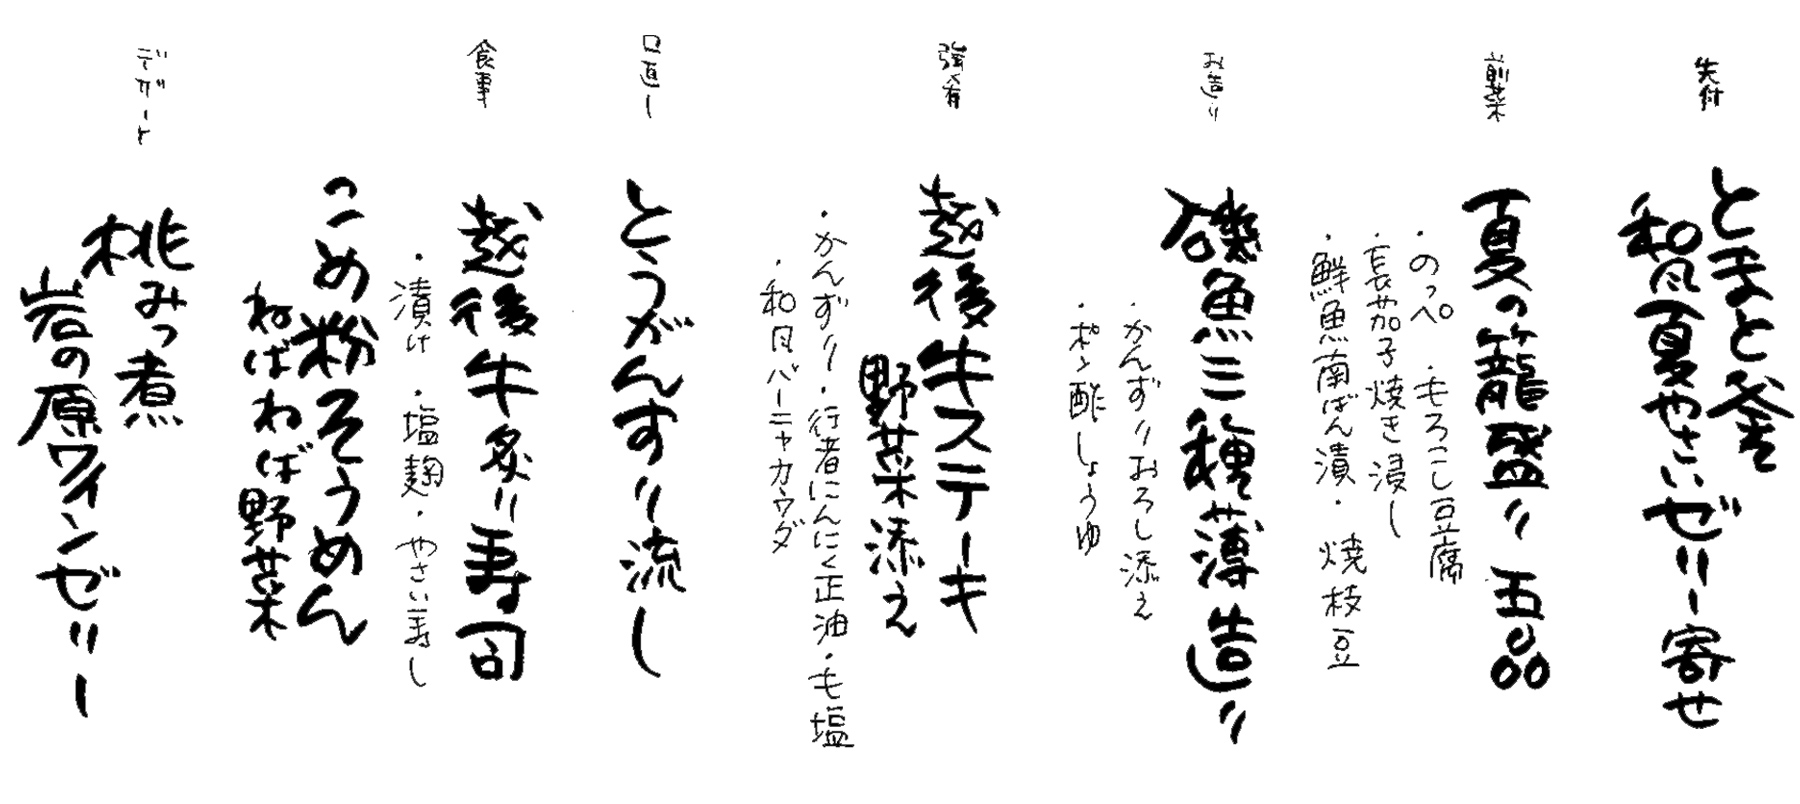 先付
とまと釜
和風夏やさいゼリー寄せ
前菜
夏の籠盛り 五品
・のっぺ ・もろこし豆腐
・長茄子焼き浸し
・鮮魚南ばん漬・焼枝豆
お造り
磯魚三種薄造り
・かんずりおろし添え
・ポン酢しょうゆ
強肴
越後牛ステーキ
野菜添え
・かんずり・行者にんにく正油・も塩
・和風バーニャカウダ
口直し
とうがんすり流し
食事
越後牛炙り寿司
・漬け ・塩麹・やさい寿し
こめ粉そうめん
ねばねば野菜
デザート
桃みつ煮
岩の原ワインゼリー